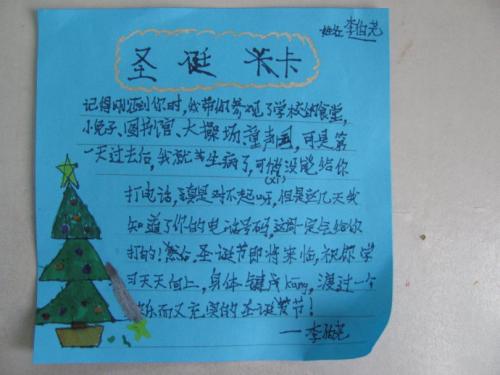 姓名 李伯尧
圣 诞 贺卡
记得刚见到你时,我带你参观了学校的食堂,
小兔子、图书馆、大操场、童声园,可是第
一天过去后,我就生病了,可惜(xī)没能给你
打电话,真是对不起呀,但是这几天我
知道了你的电话号码,这时一定会给你
打的!然后,圣诞节即将来临,祝你学
习天天向上,身体健kāng,渡过一个
快乐而又充实的圣诞节!
——李伯尧